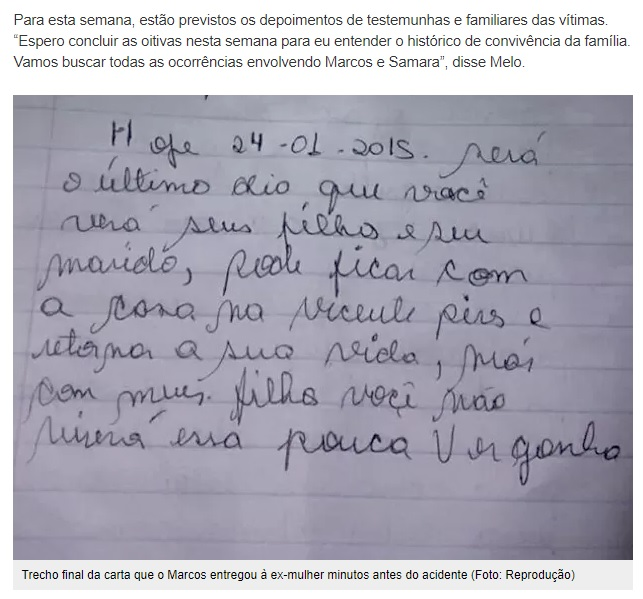 Para esta semana, estão previstos os depoimentos de testemunhas e familiares das vítimas.
“Espero concluir as oitivas nesta semana para eu entender o histórico de convivência da família.
Vamos buscar todas as ocorrências envolvendo Marcos e Samara”, disse Melo.
Hoje 24-01-2015. será
o último dia que você
verá seus filho e seu
marido, pode ficar com
a casa na vicente pires e
retorna a sua vida, mas
com meus filho você não
viverá essa pouca Vergonha
Trecho final da carta que o Marcos entregou à ex-mulher minutos antes do acidente (Foto: Reprodução)